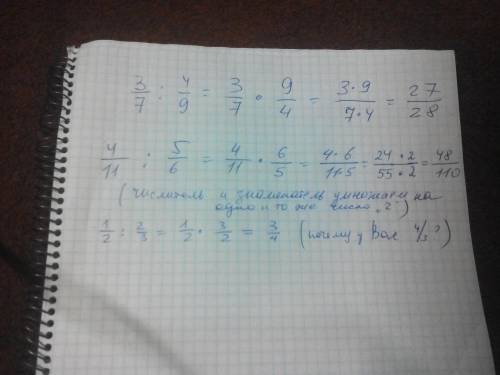 3/7 : 4/9 = 3/7 · 9/4 = 3·9/7·4 = 27/28
4/11 : 5/6 = 4/11 · 6/5 = 4·6/11·5 = 24·2/55·2 = 48/110
(числитель и знаменатель умножаем на
одно и то же число „2")
1/2 : 2/3 = 1/2 · 3/2 = 3/4 (почему у Вас 4/3 ?)